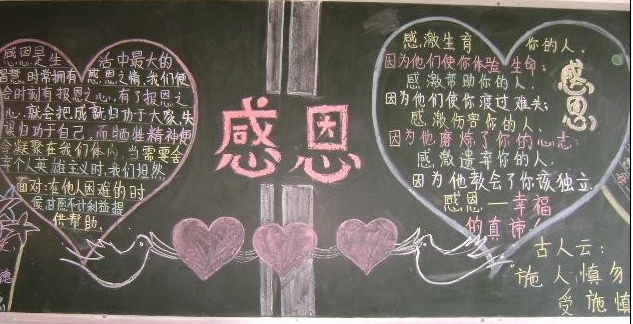 感恩是生 活中最大的
智慧.时常拥有 感恩之情.我们便
会时刻有报恩之心.有了报恩之
心.就会把成就归功于大家.失
误归功于自己.而牺牲精神便
会凝聚在我们体内.当需要舍
弃个人英雄主义时.我们坦然
面对:在他人困难的时
侯甘愿不计利益提
供帮助.
德
感恩
感激生育 你的人.
因为他们使你体验生命;
感激帮助你的人.
因为他们使你渡过难关;
感激伤害你的人.
因为他磨炼了你的心志;
感激遗弃你的人.
因为他教会了你该独立.
感恩一幸福
的真谛
感恩
古人云:
"施人慎勿
受施慎